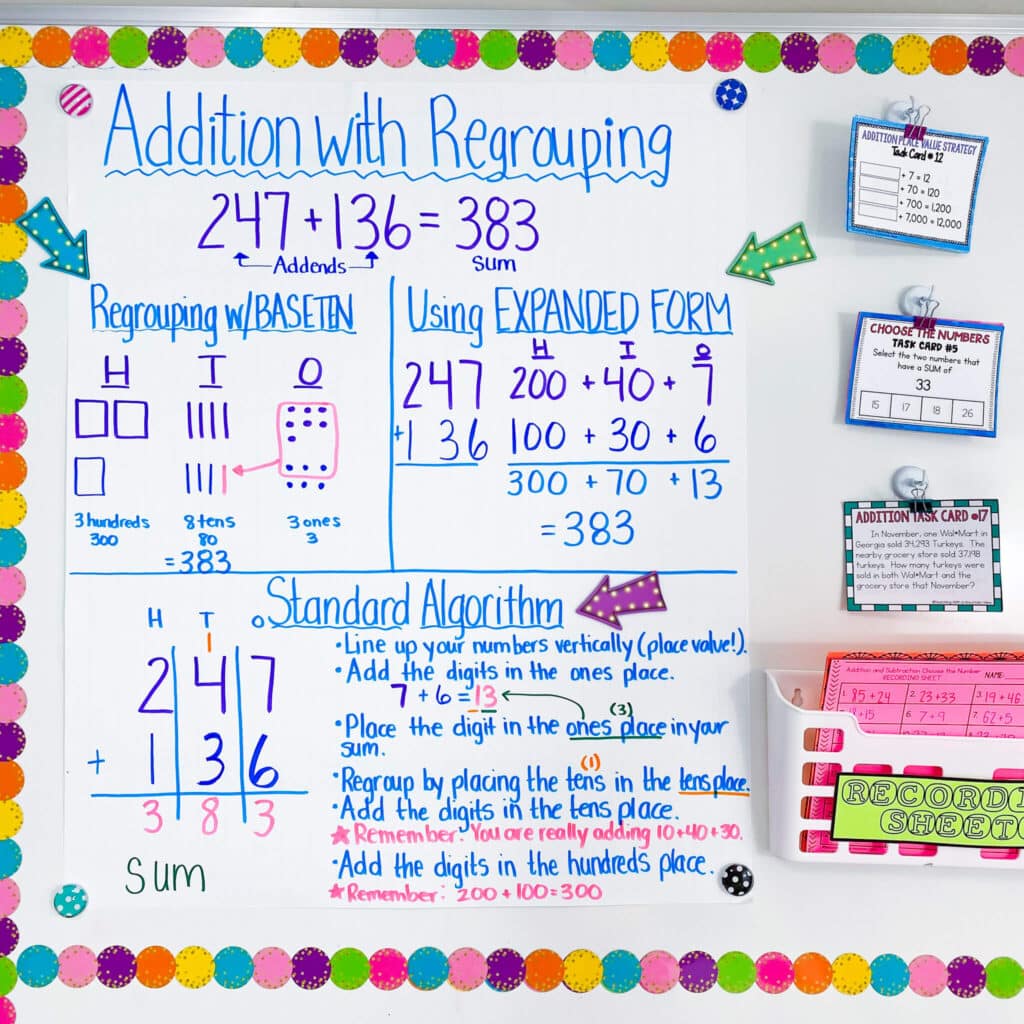 Addition with Regrouping
247 + 136 = 383
Addends
sum
Regrouping w/BASETEN
H T O
3 hundreds 8 tens 3 ones
300 80 3
= 383
Using EXPANDED FORM
H T O
247 200 + 40 + 7
+136 100 + 30 + 6
300 + 70 + 13
= 383
Standard Algorithm
H T O
1
247
+ 136
383
Sum
•Line up your numbers vertically (place value!).
•Add the digits in the ones place.
7 + 6 = 13
(3)
•Place the digit in the ones place in your
sum.
(1)
•Regroup by placing the tens in the tens place.
•Add the digits in the tens place.
★Remember: You are really adding 10+40+30.
•Add the digits in the hundreds place.
★Remember: 200 + 100 = 300
ADDITION PLACE VALUE STRATEGY
Task Card # 12
+ 7 = 12
+ 70 = 120
+ 700 = 1,200
+ 7,000 = 12,000
CHOOSE THE NUMBERS
TASK CARD #5
Select the two numbers that
have a SUM of
33
15 17 18 26
ADDITION TASK CARD #17
In November, one Wal•Mart in
Georgia sold 34,293 Turkeys. The
nearby grocery store sold 37,198
turkeys. How many turkeys were
sold in both Wal•Mart and the
grocery store that November?
Addition and Subtraction Choose the Number
RECORDING SHEET
NAME:
1. 85 + 24 2. 23 + 33 3. 19 + 46
+15 6. 7 + 9 7. 62 + 5
RECORDI
SHEET